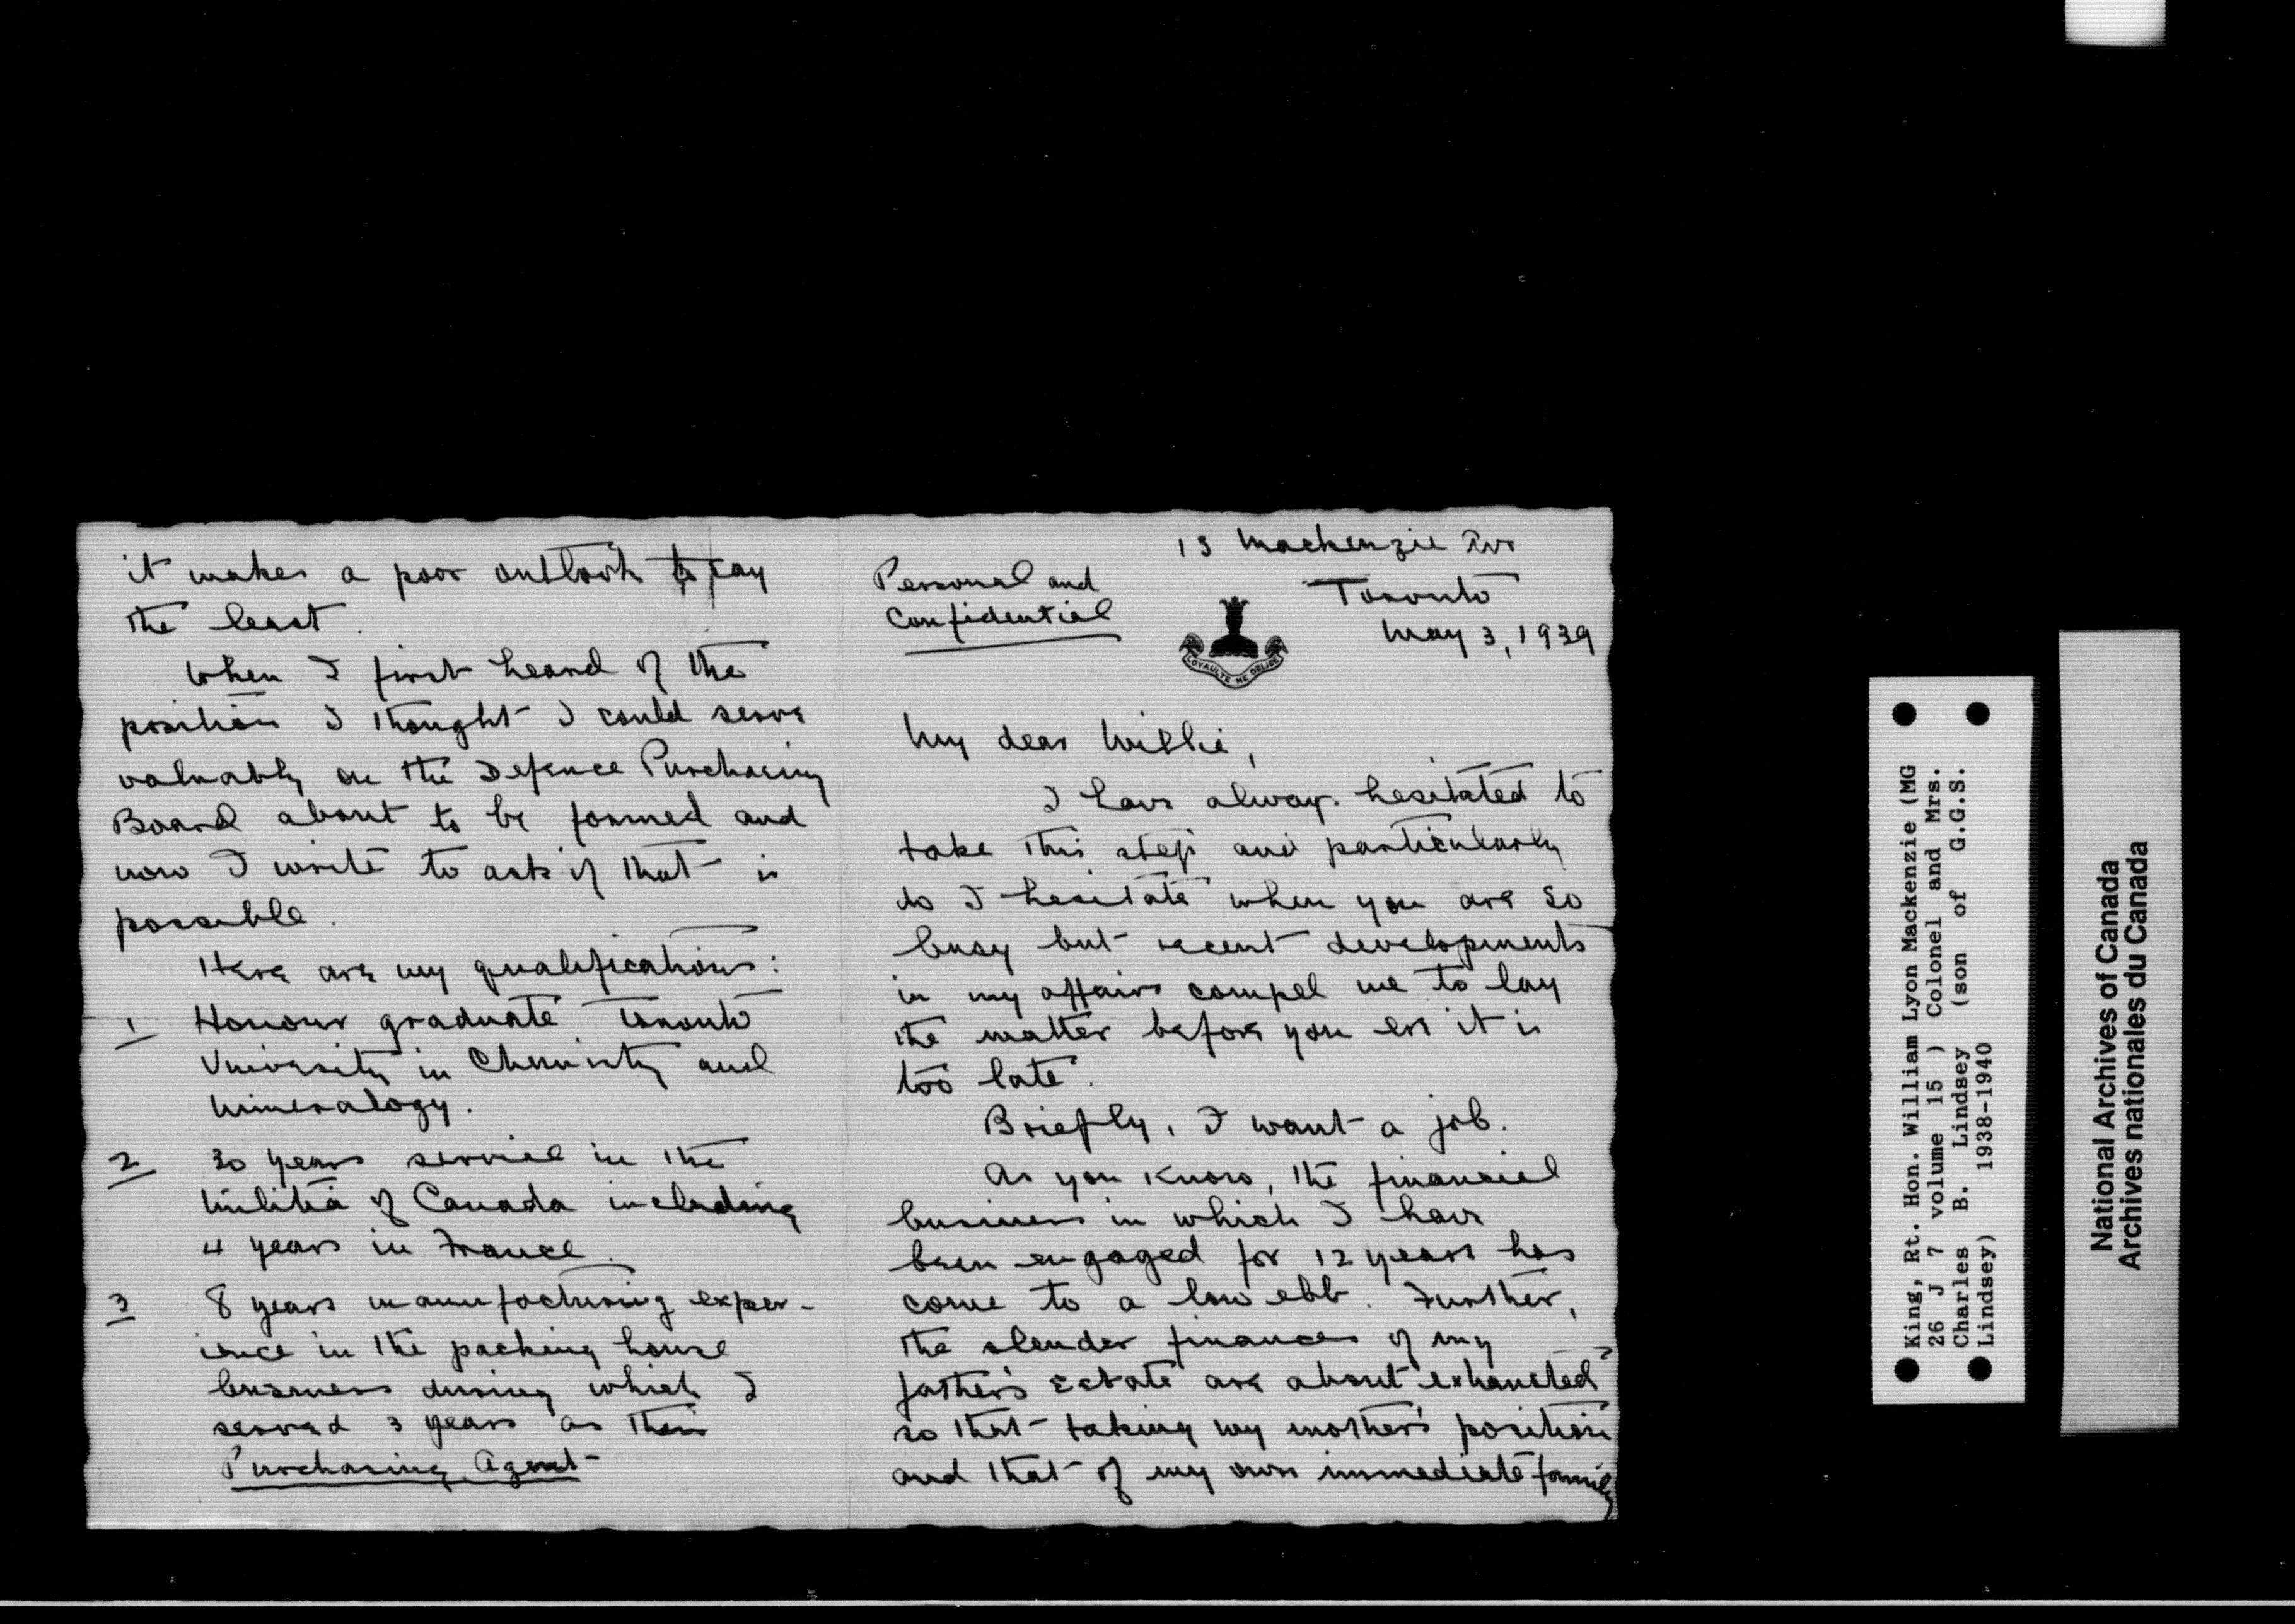 13 Mackenzie Ave
Personal and
Confidential
Toronto
May 3, 1939
LOYAULTE ME OBLIGE
My dear Willie,
I have always hesitated to
take this step and particularly
do I hesitate when you are so
busy but recent developments
in my affairs compel me to lay
the matter before you ere it is
too late.
Briefly, I want a job.
As you know, the financial
business in which I have
been engaged for 12 years has
come to a low ebb. Further,
the slender finances of my
father's Estate are about exhausted
so that taking my mother's position
and that of my own immediate family
it makes a poor outlook to say
the least.
When I first heard of the
position I thought I could serve
valuably on the Defence Purchasing
Board about to be formed and
now I write to ask if that is
possible.
Here are my qualifications:
1 Honour graduate Toronto
University in Chemistry and
Mineralogy.
2 30 years service in the
Militia of Canada including
4 years in France.
3 8 years manufacturing exper-
ience in the packing house
business during which I
served 3 years as their
Purchasing Agent
King, Rt. Hon. William Lyon Mackenzie (MG
26 J 7 volume 15 ) Colonel and Mrs.
Charles B. Lindsey (son of G.G.S.
Lindsey) 1938-1940
National Archives of Canada
Archives nationales du Canada